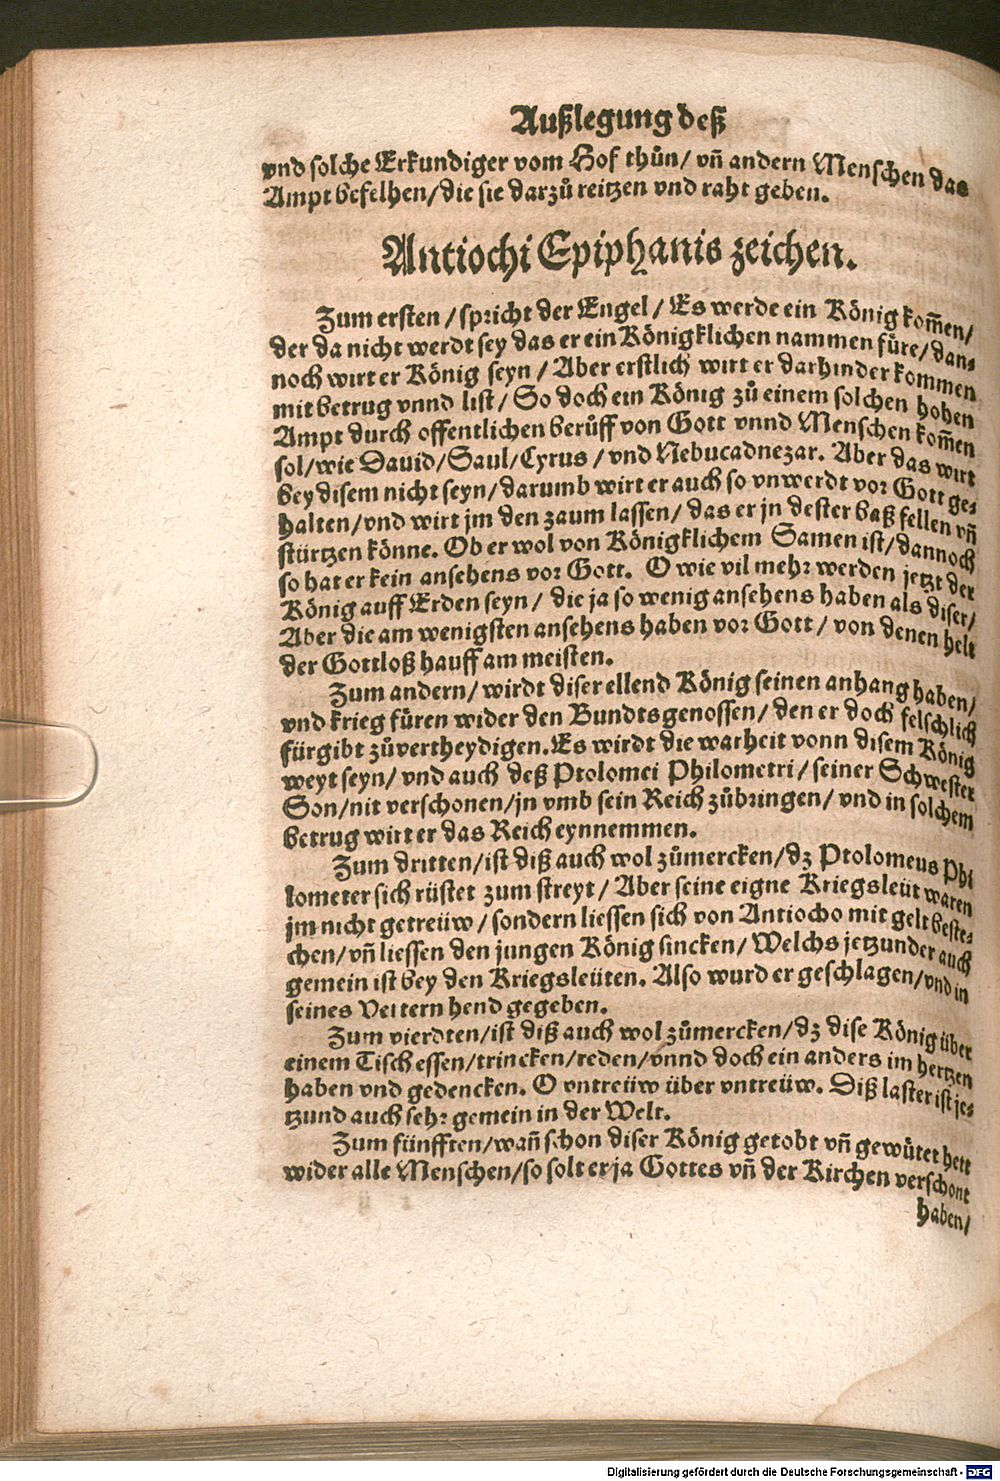 Außlegung deß
vnd solche Erkundiger vom Hof thůn/ vñ andern Menschen das
Ampt befelhen/die sie darzů reitzen vnd raht geben.
Antiochi Epiphanis zeichen.
Zum ersten/spricht der Engel/ Es werde ein König kom̃en/
der da nicht werdt sey das er ein Königklichen nammen füre/dan⸗
noch wirt er König seyn/ Aber erstlich wirt er darhinder kommen
mit betrug vnnd list/ So doch ein König zů einem solchen hohen
Ampt durch offentlichen berůff von Gott vnnd Menschen kom̃en
sol/wie Dauid/Saul/Cyrus/vnd Nebucadnezar. Aber das wirt
bey disem nicht seyn/darumb wirt er auch so vnwerdt vor Gott ge⸗
halten/vnd wirt jm den zaum lassen/ das er jn dester baß fellen vñ
stürtzen könne. Ob er wol von Königklichem Samen ist/dannoch
so hat er kein ansehens vor Gott. O wie vil mehr werden jetzt der
König auff Erden seyn/ die ja so wenig ansehens haben als diser/
Aber die am wenigsten ansehens haben vor Gott/ von denen helt
der Gottloß hauff am meisten.
Zum andern/ wirdt diser ellend König seinen anhang haben/
vnd krieg füren wider den Bundtsgenossen/ den er doch felschlich
fürgibt zůvertheydigen. Es wirdt die warheit vonn disem König
weyt seyn/ vnd auch deß Ptolomei Philometri/ seiner Schwester
Son/nit verschonen/jn vmb sein Reich zůbringen/ vnd in solchem
betrug wirt er das Reich eynnemmen.
Zum dritten/ist diß auch wol zůmercken/dz Ptolomeus Phi
lometer sich rüstet zum streyt/ Aber seine eigne Kriegsleüt waren
jm nicht getreüw/ sondern liessen sich von Antiocho mit gelt beste⸗
chen/vñ liessen den jungen König sincken/ Welchs jetzunder auch
gemein ist bey den Kriegsleüten. Also wurd er geschlagen/vnd in
seines Vettern hend gegeben.
Zum vierdten/ist diß auch wol zůmercken/dz dise König über
einem Tisch essen/trincken/reden/vnnd doch ein anders im hertzen
haben vnd gedencken. O vntreüw über vntreüw. Diß laster ist je⸗
tzund auch sehr gemein in der Welt.
Zum fünfften/wañ schon diser König getobt vñ gewütet hett
wider alle Menschen/so solt er ja Gottes vñ der Kirchen verschont
haben/
Digitalisierung gefördert durch die Deutsche Forschungsgemeinschaft - DFG